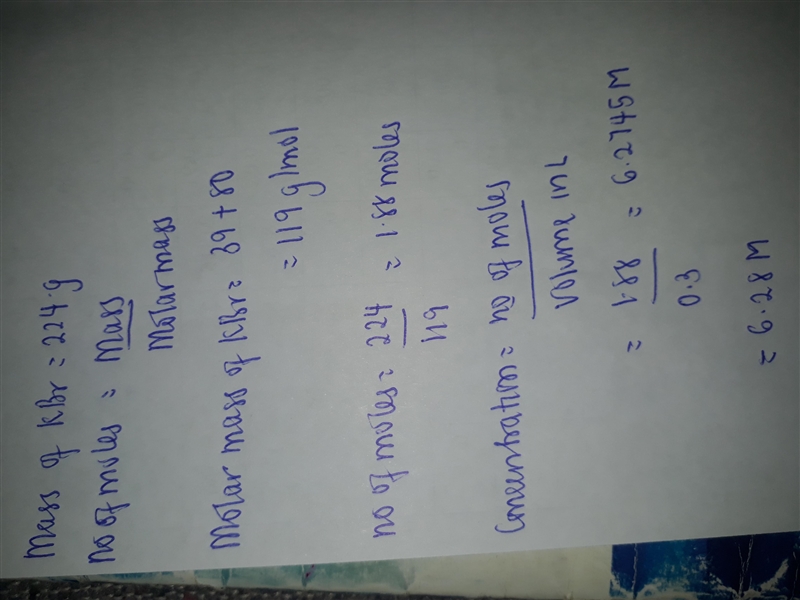 Mass of KBr = 224.g
No of moles = Mass
Molar mass
Molar mass of KBr = 39 + 80
= 119 g/mol
no of moles = 224 = 1.88 moles
119
Concentration = no of moles
Volume in L
= 1.88 = 6.2745 M
0.3
= 6.28 M